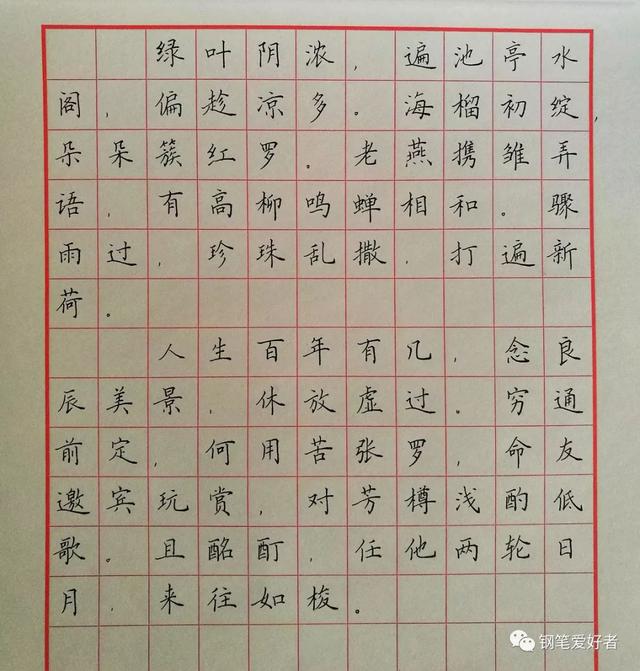 绿叶阴浓，遍池亭水
阁，偏趁凉多。海榴初绽，
朵朵簇红罗。老燕携雏弄
语，有高柳鸣蝉相和。骤
雨过，珍珠乱撒，打遍新
荷。
人生百年有几，念良
辰美景，休放虚过。穷通
前定，何用苦张罗，命友
邀宾玩赏，对芳樽浅酌低
歌。且酩酊，任他两轮日
月，来往如梭。
钢笔爱好者